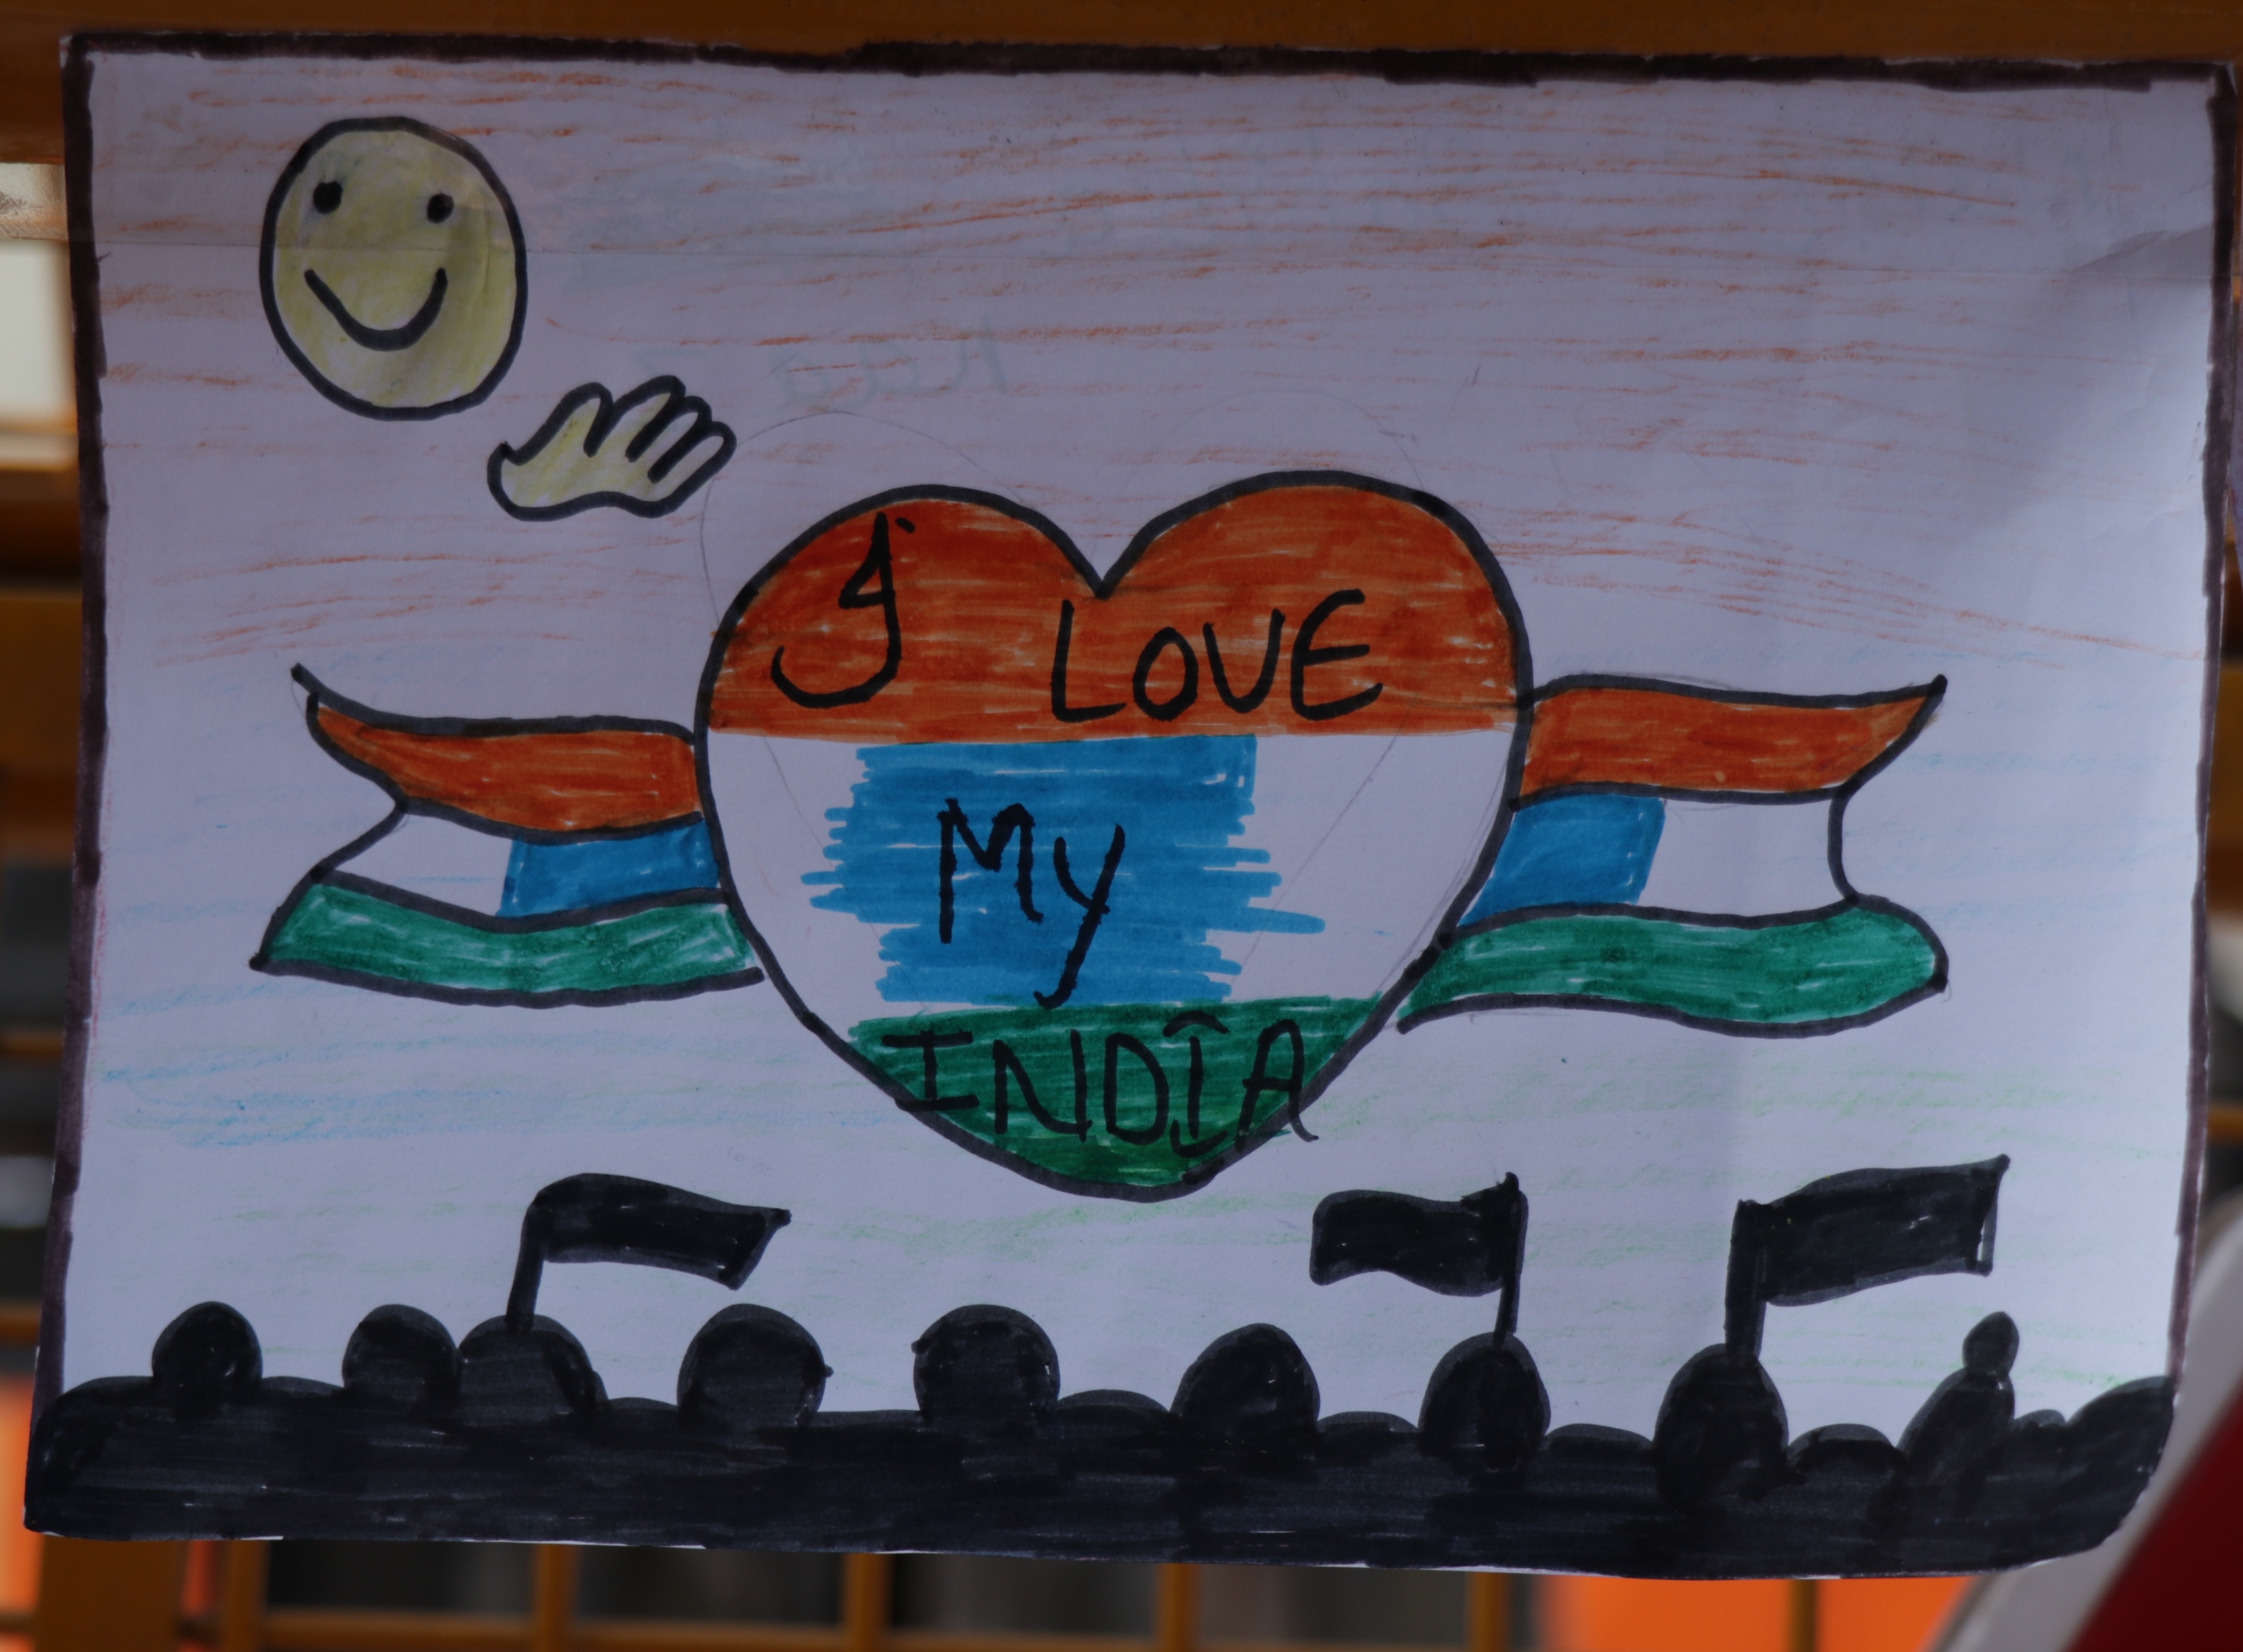 I LOVE
My
INDIA